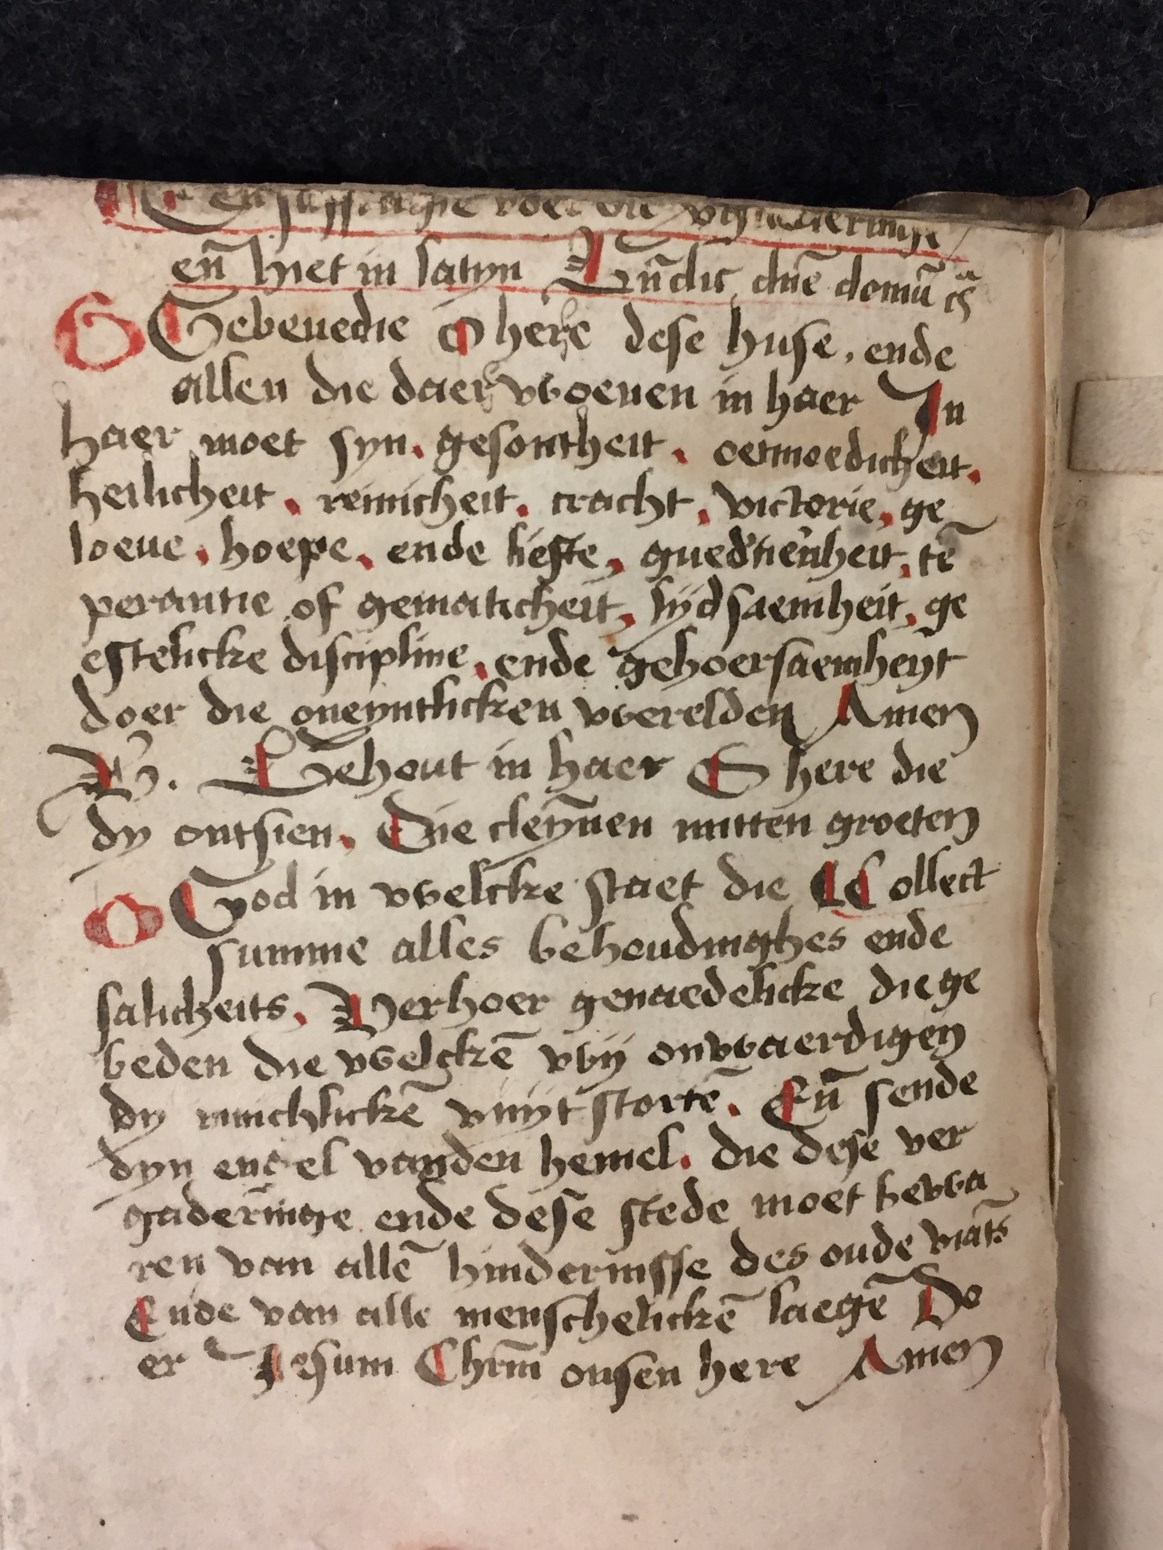 en suffragie voer die vergaderinge
en̄ hiet in latyn Bn̄dic dn̄e domū
Gebenedie O here dese huse, ende
allen die daer vvoenen in haer In
haer moet syn. gesontheit. oetmoedicheit.
heilicheit. reinicheit. cracht. victorie. ge
loeue. hoepe. ende liefte. guedertierenheit. tē
perantie of gematicheit. lijdsaemheit. ge
estelicke discipline. ende gehoersaemheyt
doer die oneyntlicken vverelden Amen
V. Behout in haer O here die
dy ontsien. Die cleynen mitten groeten
O God in vvelcke staet die Collect
summe alles behoudinghes ende
salicheits. Verhoer genaedelicke die ge
beden die vvelckē vvij onvvaerdigen
dy innichlickē vuijt stortē. En̄ sende
dyn engel vanden hemel. die dese ver
gaderinge ende dese stede moet bevva
ren van allē hindernisse des oude viāts
Ende van alle menschelickē laegē Do
er Iesum Chrm̄ onsen here Amen